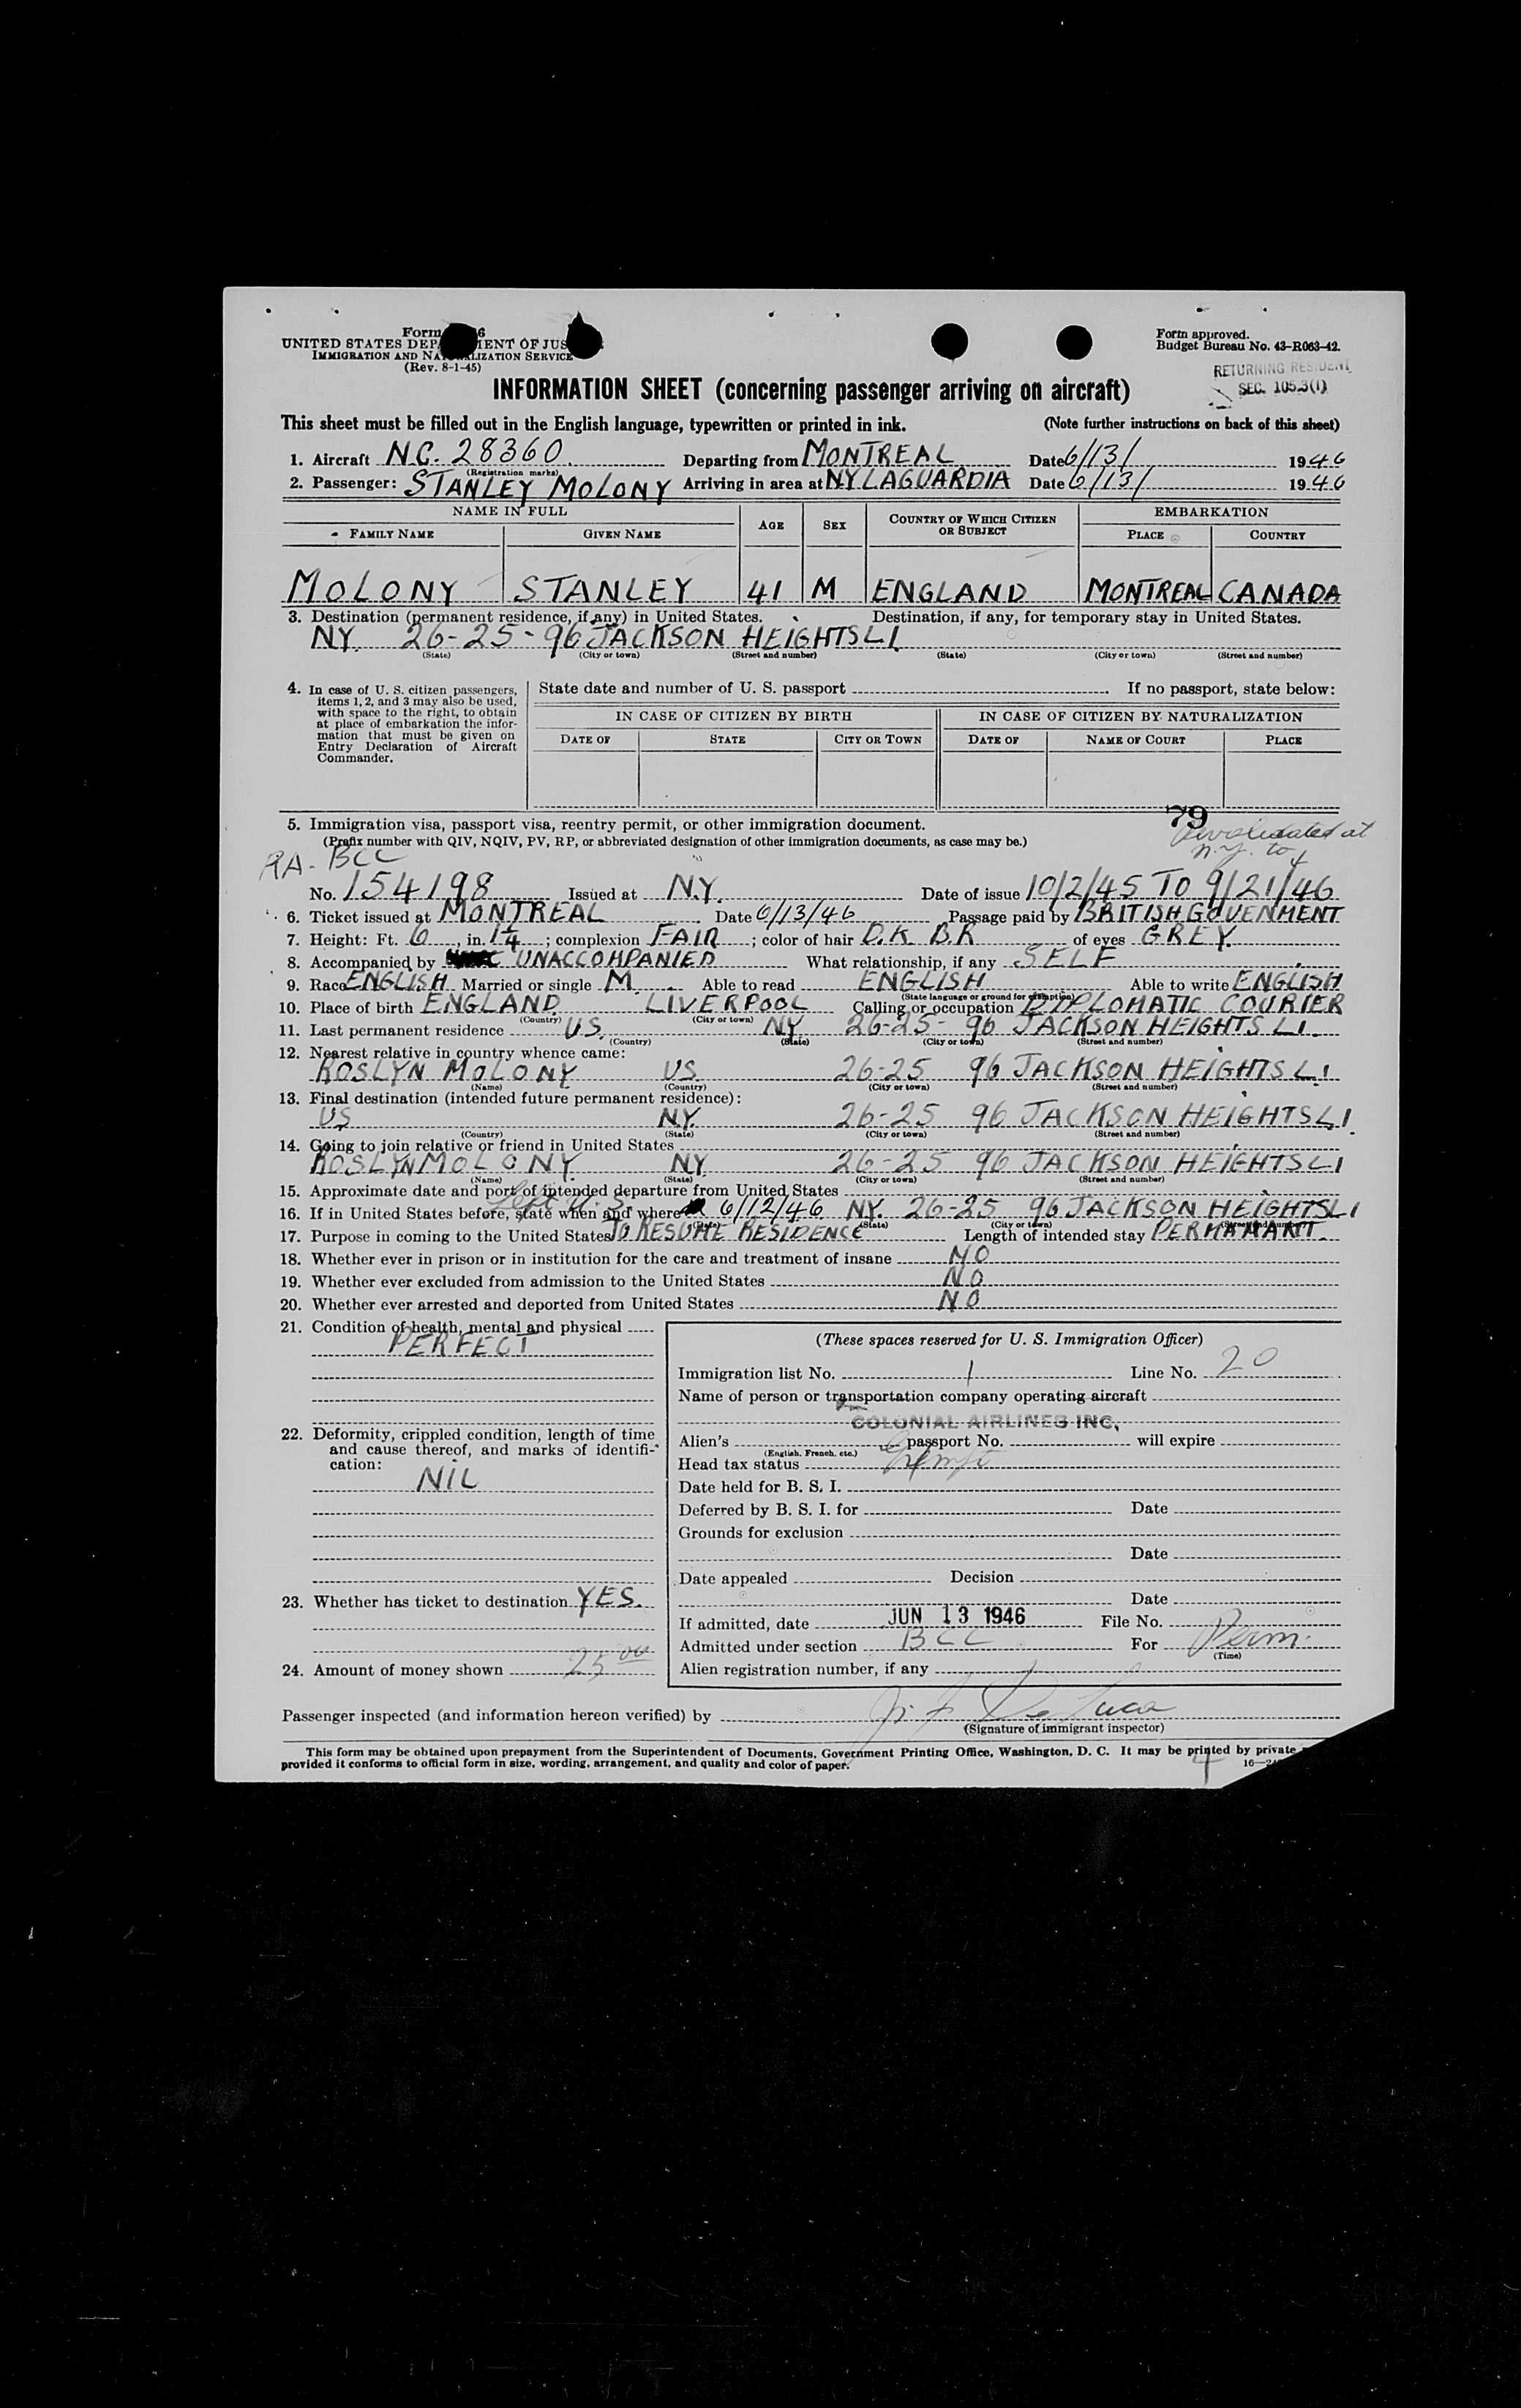 Form 6
UNITED STATES DEP MENT OF JUS
IMMIGRATION AND NA LIZATION SERVICE
(Rev. 8-1-45)
Form approved.
Budget Bureau No. 43-R063-42.
RETURNING RESIDENT
SEC. 105.3(1)
INFORMATION SHEET (concerning passenger arriving on aircraft)
This sheet must be filled out in the English language, typewritten or printed in ink. (Note further instructions on back of this sheet)
1. Aircraft N.C. 28360 Departing from MONTREAL Date 6/13/ 1946
(Registration marks)
2. Passenger: STANLEY MOLONY Arriving in area at NY LAGUARDIA Date 6/13/ 1946
NAME IN FULL AGE SEX COUNTRY OF WHICH CITIZEN OR SUBJECT EMBARKATION
FAMILY NAME GIVEN NAME PLACE COUNTRY
MOLONY STANLEY 41 M ENGLAND MONTREAL CANADA
3. Destination (permanent residence, if any) in United States. Destination, if any, for temporary stay in United States.
NY. 26-25-96 JACKSON HEIGHTS L I
(State) (City or town) (Street and number) (State) (City or town) (Street and number)
4. In case of U. S. citizen passengers, items 1, 2, and 3 may also be used, with space to the right, to obtain at place of embarkation the information that must be given on Entry Declaration of Aircraft Commander.
State date and number of U. S. passport If no passport, state below:
IN CASE OF CITIZEN BY BIRTH IN CASE OF CITIZEN BY NATURALIZATION
DATE OF STATE CITY OR TOWN DATE OF NAME OF COURT PLACE
79
5. Immigration visa, passport visa, reentry permit, or other immigration document.
(Prefix number with QIV, NQIV, PV, RP, or abbreviated designation of other immigration documents, as case may be.)
Revalidated at
N.Y. to
RA- BCC
No. 154198 Issued at N.Y. Date of issue 10/2/45 TO 9/21/46
6. Ticket issued at MONTREAL Date 6/13/46 Passage paid by BRITISH GOVENMENT
7. Height: Ft. 6, in. 1 1/4; complexion FAIR; color of hair D.K B.R of eyes GREY
8. Accompanied by UNACCOMPANIED What relationship, if any SELF
9. Race ENGLISH Married or single M. Able to read ENGLISH Able to write ENGLISH
(State language or ground for exemption)
10. Place of birth ENGLAND LIVERPOOL Calling or occupation DIPLOMATIC COURIER
(Country) (City or town)
11. Last permanent residence US. NY 26-25- 96 JACKSON HEIGHTS L I
(Country) (State) (City or town) (Street and number)
12. Nearest relative in country whence came:
ROSLYN MOLONY US. 26-25 96 JACKSON HEIGHTS L.I
(Name) (Country) (City or town) (Street and number)
13. Final destination (intended future permanent residence):
US NY. 26-25 96 JACKSON HEIGHTS L I
(Country) (State) (City or town) (Street and number)
14. Going to join relative or friend in United States
ROSLYN MOLONY. NY. 26-25 96 JACKSON HEIGHTS L I
(Name) (State) (City or town) (Street and number)
15. Approximate date and port of intended departure from United States
Left U.S.
16. If in United States before, state when and where 6/12/46 NY. 26-25 96 JACKSON HEIGHTS L I
(Date) (State) (City or town) (Street and number)
17. Purpose in coming to the United States TO RESUME RESIDENCE Length of intended stay PERMANANT
18. Whether ever in prison or in institution for the care and treatment of insane NO
19. Whether ever excluded from admission to the United States NO
20. Whether ever arrested and deported from United States NO
21. Condition of health, mental and physical
PERFECT
22. Deformity, crippled condition, length of time and cause thereof, and marks of identification:
NIL
23. Whether has ticket to destination YES.
24. Amount of money shown 25 00
(These spaces reserved for U. S. Immigration Officer)
Immigration list No. 1 Line No. 20
Name of person or transportation company operating aircraft
COLONIAL AIRLINES INC.
Alien's passport No. will expire
(English, French, etc.)
Head tax status Exempt
Date held for B. S. I.
Deferred by B. S. I. for Date
Grounds for exclusion
Date
Date appealed Decision
Date
If admitted, date JUN 13 1946 File No.
Admitted under section BCC For Perm.
(Time)
Alien registration number, if any
Passenger inspected (and information hereon verified) by De Luca
(Signature of immigrant inspector)
This form may be obtained upon prepayment from the Superintendent of Documents, Government Printing Office, Washington, D. C. It may be printed by private
provided it conforms to official form in size, wording, arrangement, and quality and color of paper.
4
16—